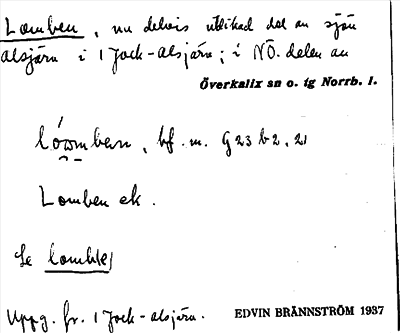 Lomben, nu delvis utdikad del av sjön
alsjärv i 1 Jock-alsjärv; i NÖ. delen av
Överkalix sn o. tg Norrb. l.
lówmben, bf. m. G23 b2, 21
Lomben ek.
Se lombk
Uppg. fr. 1 Jock-alsjärv.
EDVIN BRÄNNSTRÖM 1937